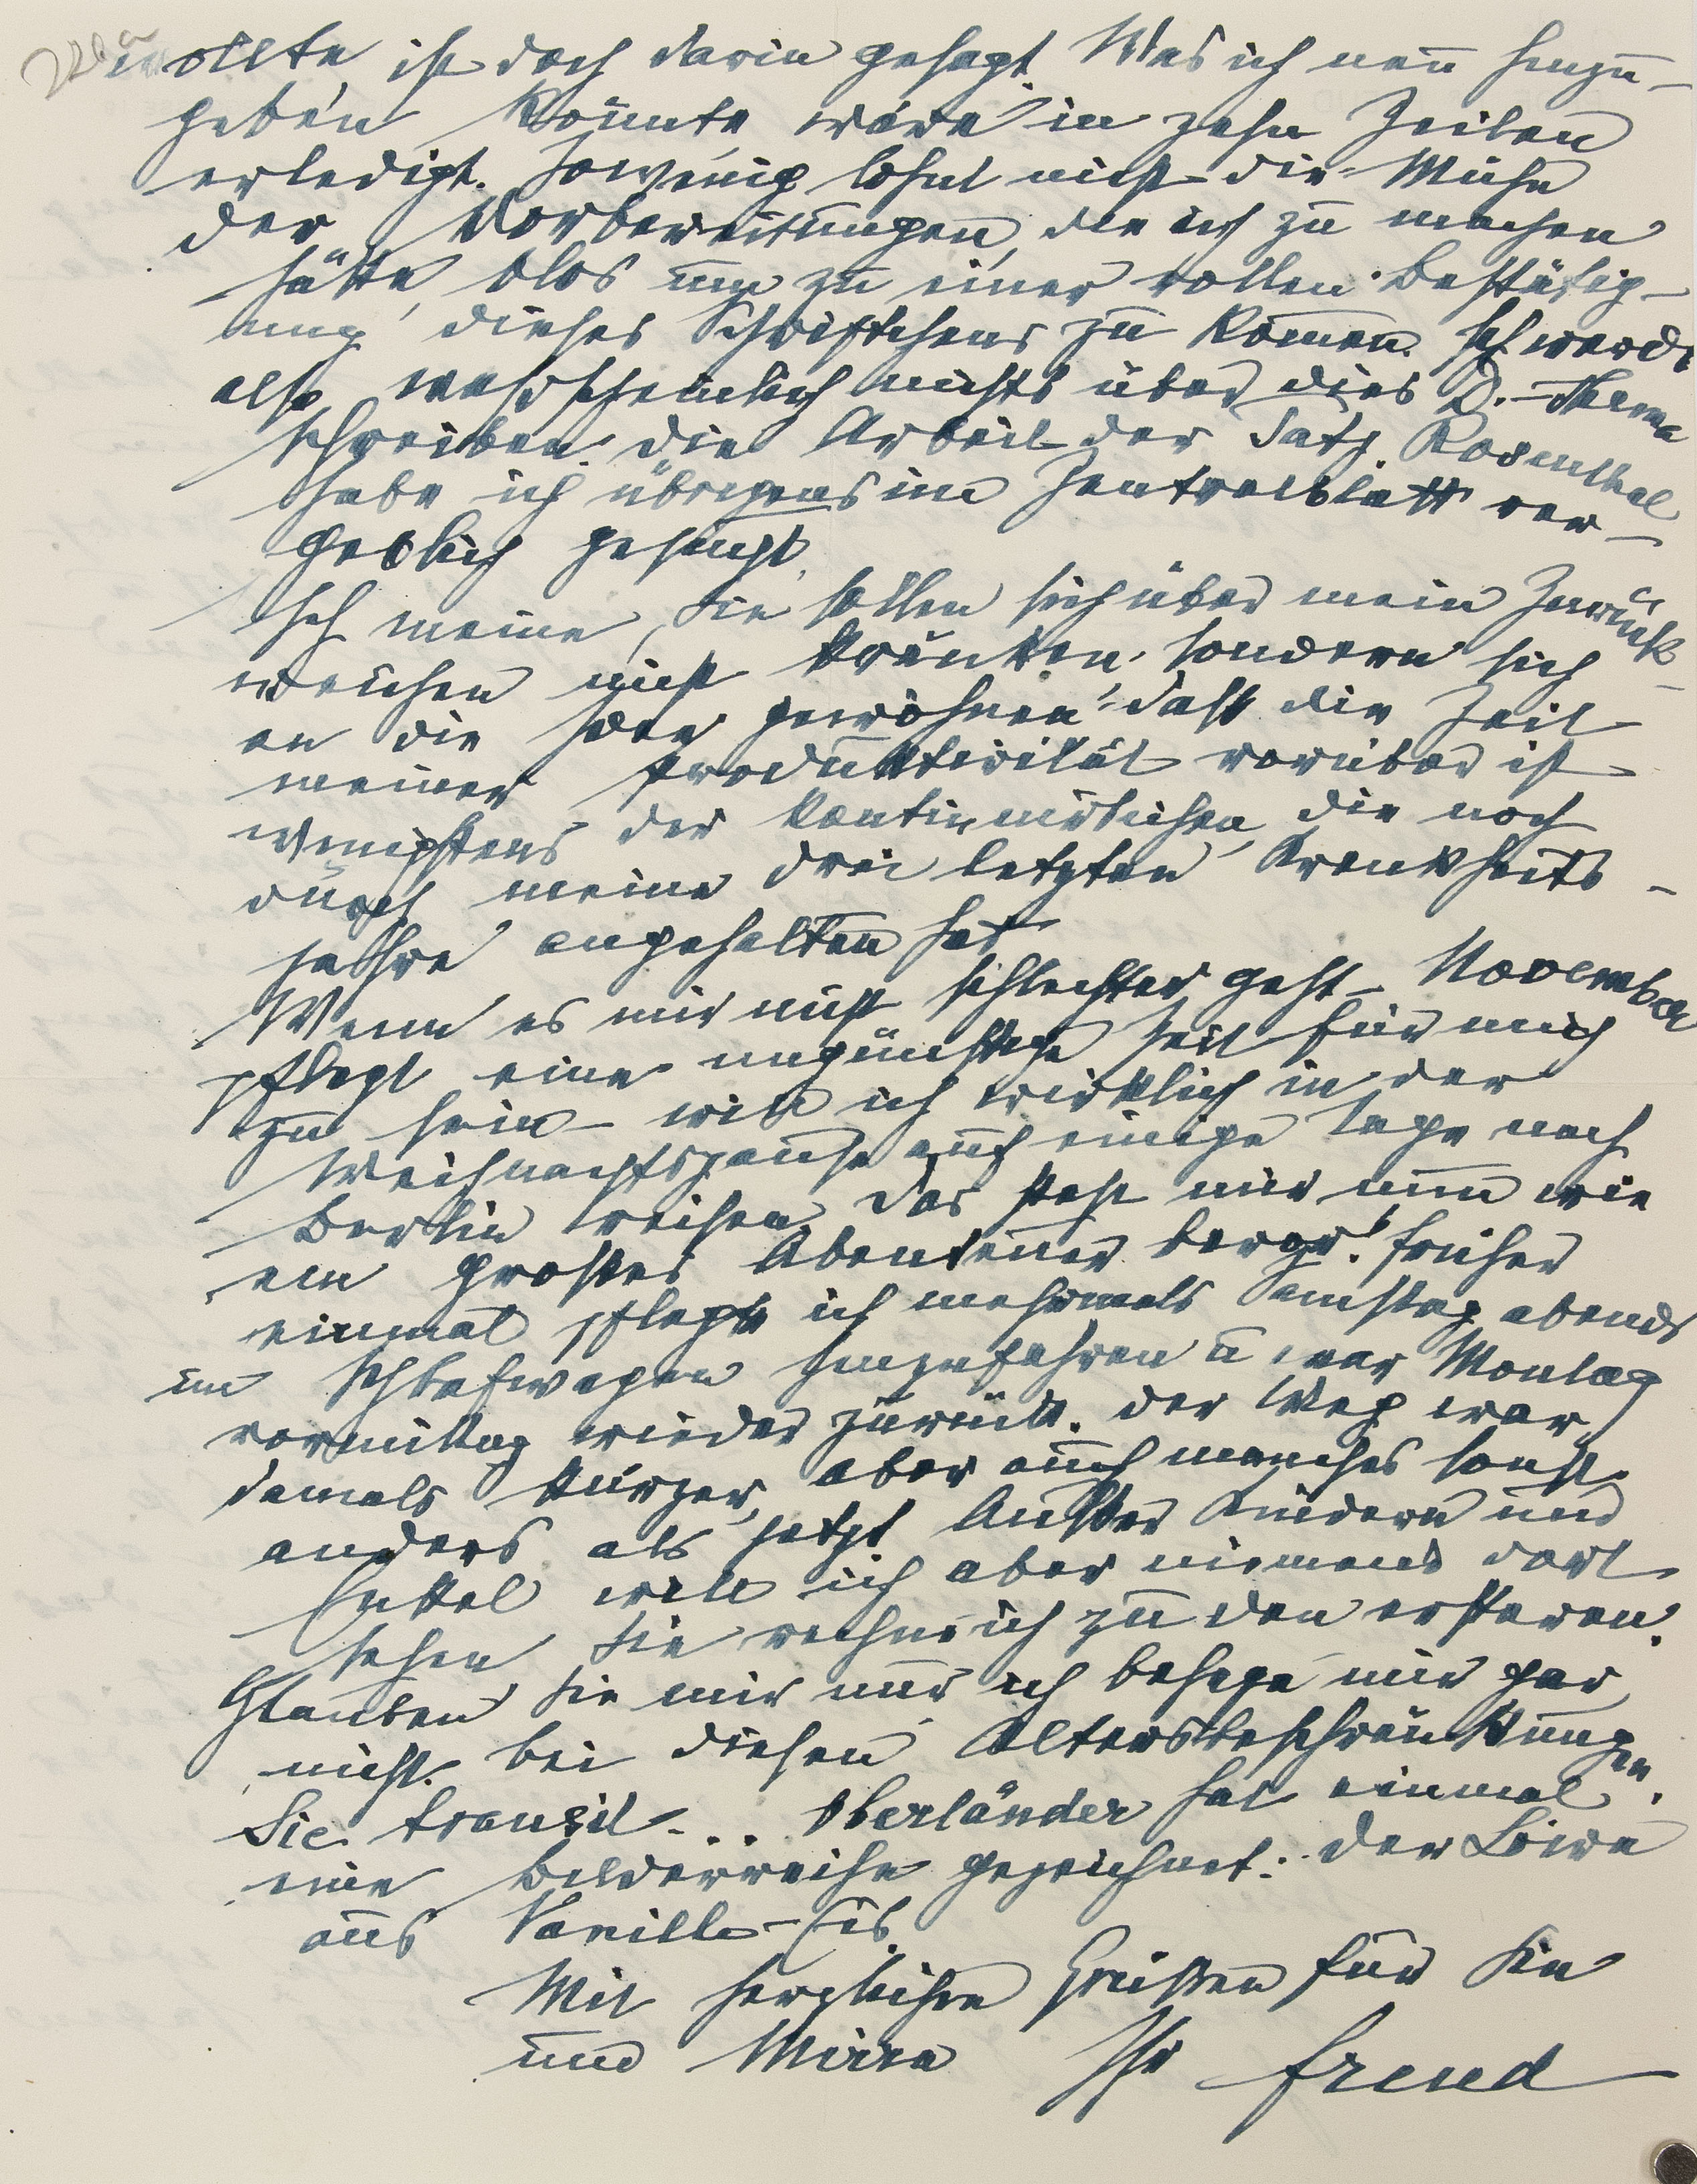 wollte, ist doch darin gesagt. Was ich neu hinzu-
geben könnte, wäre in zehn Zeilen
erledigt. So wenig lohnt nicht die Mühe
der Vorbereitungen, die ich zu machen
hätte, blos um zu einer vollen Bestätig-
ung dieses Schriftchens zu kommen. Ich werde
also wahrscheinlich nichts über dies D.-Thema
schreiben. Die Arbeit der Tatj. Rosenthal
habe ich übrigens im Zentralblatt ver-
geblich gesucht.
Ich meine, Sie sollen sich über mein Zurück-
weichen nicht kränken, sondern sich
an die Idee gewöhnen, daß die Zeit
meiner Produktivität vorüber ist
wenigstens der kontinuirlichen, die noch
durch meine drei letzten Krankheits-
jahre angehalten hat.
Wenn es mir nicht schlechter geht – November
pflegt eine ungünstige Zeit für mich
zu sein – will ich wirklich in der
Weihnachtspause auf einige Tage nach
Berlin reisen. Das steht mir nun wie
ein großes Abenteuer bevor. Früher
einmal pflegte ich mehrmals Samstag abends
im Schlafwagen hinzufahren u war Montag
vormittag wieder zurück. Der Weg war
damals kürzer, aber auch manches sonst
anders als jetzt. Außer Kindern und
Enkel will ich aber niemand dort
sehen. Sie rechne ich zu den ersteren.
Glauben Sie mir nur, ich behage mir gar
nicht bei diesen Altersbeschränkungen.
Sic transit... Oberländer hat einmal
eine Bilderreihe gezeichnet: Der Löwe
aus Vanille-Eis.
Mit herzlichen Grüßen für Sie
und Mirra Ihr Freud